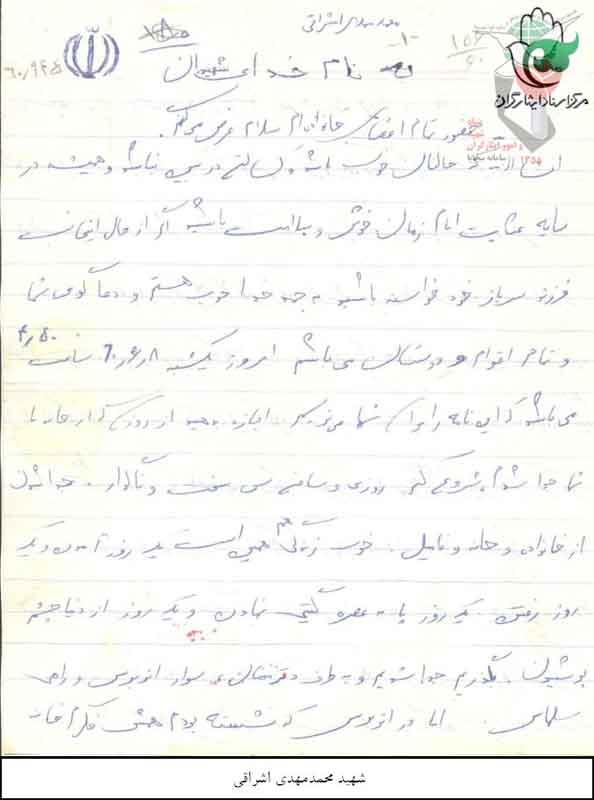 محمد مهدی اشراقی
-۱-
۱۵۴/۶۰
۶۰٫۹۴۵
به نام خدای شهیدان
مرکز اسناد ایثارگران
حضور تمام اعضای خانواده‌ام سلام عرض می‌کنم.
ان حالتان خوب باشد و کسالتی در بین نباشد و همیشه در
سایه عنایت امام زمان خوش و سلامت باشید اگر از حال اینجانب
فرزند سرباز خود خواسته باشید به حمد خدا خوب هستم و دعا گوی شما
و تمام اقوام و دوستان می باشم امروز یکشنبه ۶۰٫۶٫۸ ساعت ۴٫۵۰
می باشد که این نامه را برای شما می‌نویسم. اجازه بدهید از روزی که از خانه با
شما جدا شدم شروع کنم روزی و ساعتی بس سخت و ناگوار. جدا شدن
از خانواده و خانه و فامیل. خوب زندگی هم همین است یک روز آمدن و یک
روز رفتن. یک روز پا به عرصه گیتی نهادن و یک روز از دنیا چشم
پوشیدن. بگذریم جدا شدیم و به طرف سوار اتوبوس و راهی
سلماس. اما در اتوبوس که نشسته بودم همش فکرم خانه
شهید محمدمهدی اشراقی